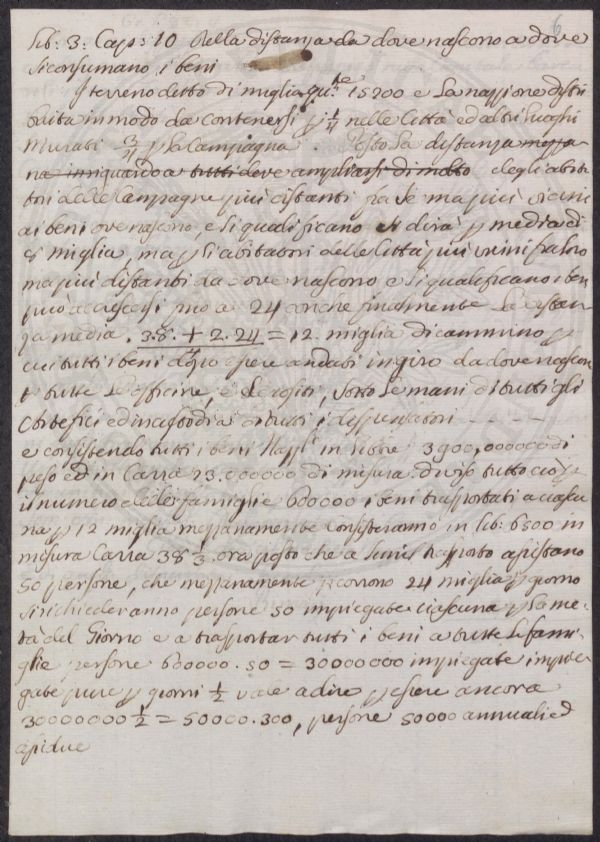 6
Lib: 3: Cap: 10 Della distanza da dove nascono a dove
si consumano i beni
Il terreno detto di miglia qu.te 15200 e la nazzione distri
buita in modo da contenersi p 1/4 nelle Città ed altri luoghi
Murati 3/4 p la Campagna. Posto la distanza mezza
na in riguardo a tutti deve ampliarsi di molto degli abita
tori delle Campagne più distanti fra se ma più vicini
ai beni ove nascono, e si qualificano si dirà p media di
8 miglia, ma p li abitatori delle Città più vicini fra loro
ma più distanti da dove nascono e si qualificano i beni
può accrescersi fino a 24 anche finalmente la distan
za media. 3.8. + 2.24 = 12. miglia di cammino p
cui tutti i beni d essere andati in giro da dove nascon
o tutte le officine, e depositi, sotto le mani di tutti gli
Artefici ed in custodia di tutti i dispensatori - - -
e consistendo tutti i beni Naz.li in libre 3900,000000 di
peso ed in Carra 23.000000 di misura. diviso tutto ciò p
il numero delle famiglie 600000 i beni trasportati a ciascu
na p 12 miglia mezzanamente consisteranno in lib: 6500 in
misura Carra 38 3. ora posto che a simil trasporto assistano
50 persone, che mezzanamente percorrono 24 miglia p giorno
si richiederanno persone 50 impiegate ciascuna p la me-
tà del Giorno e a trasportar tutti i beni a tutte le fami-
glie persone 600000. 50 = 30000000 impiegate impie-
gate pure p giorni 1/2 vale a dire p essere ancora
30000000 1/2 = 50000. 300, persone 50000 annuali ed
assidue